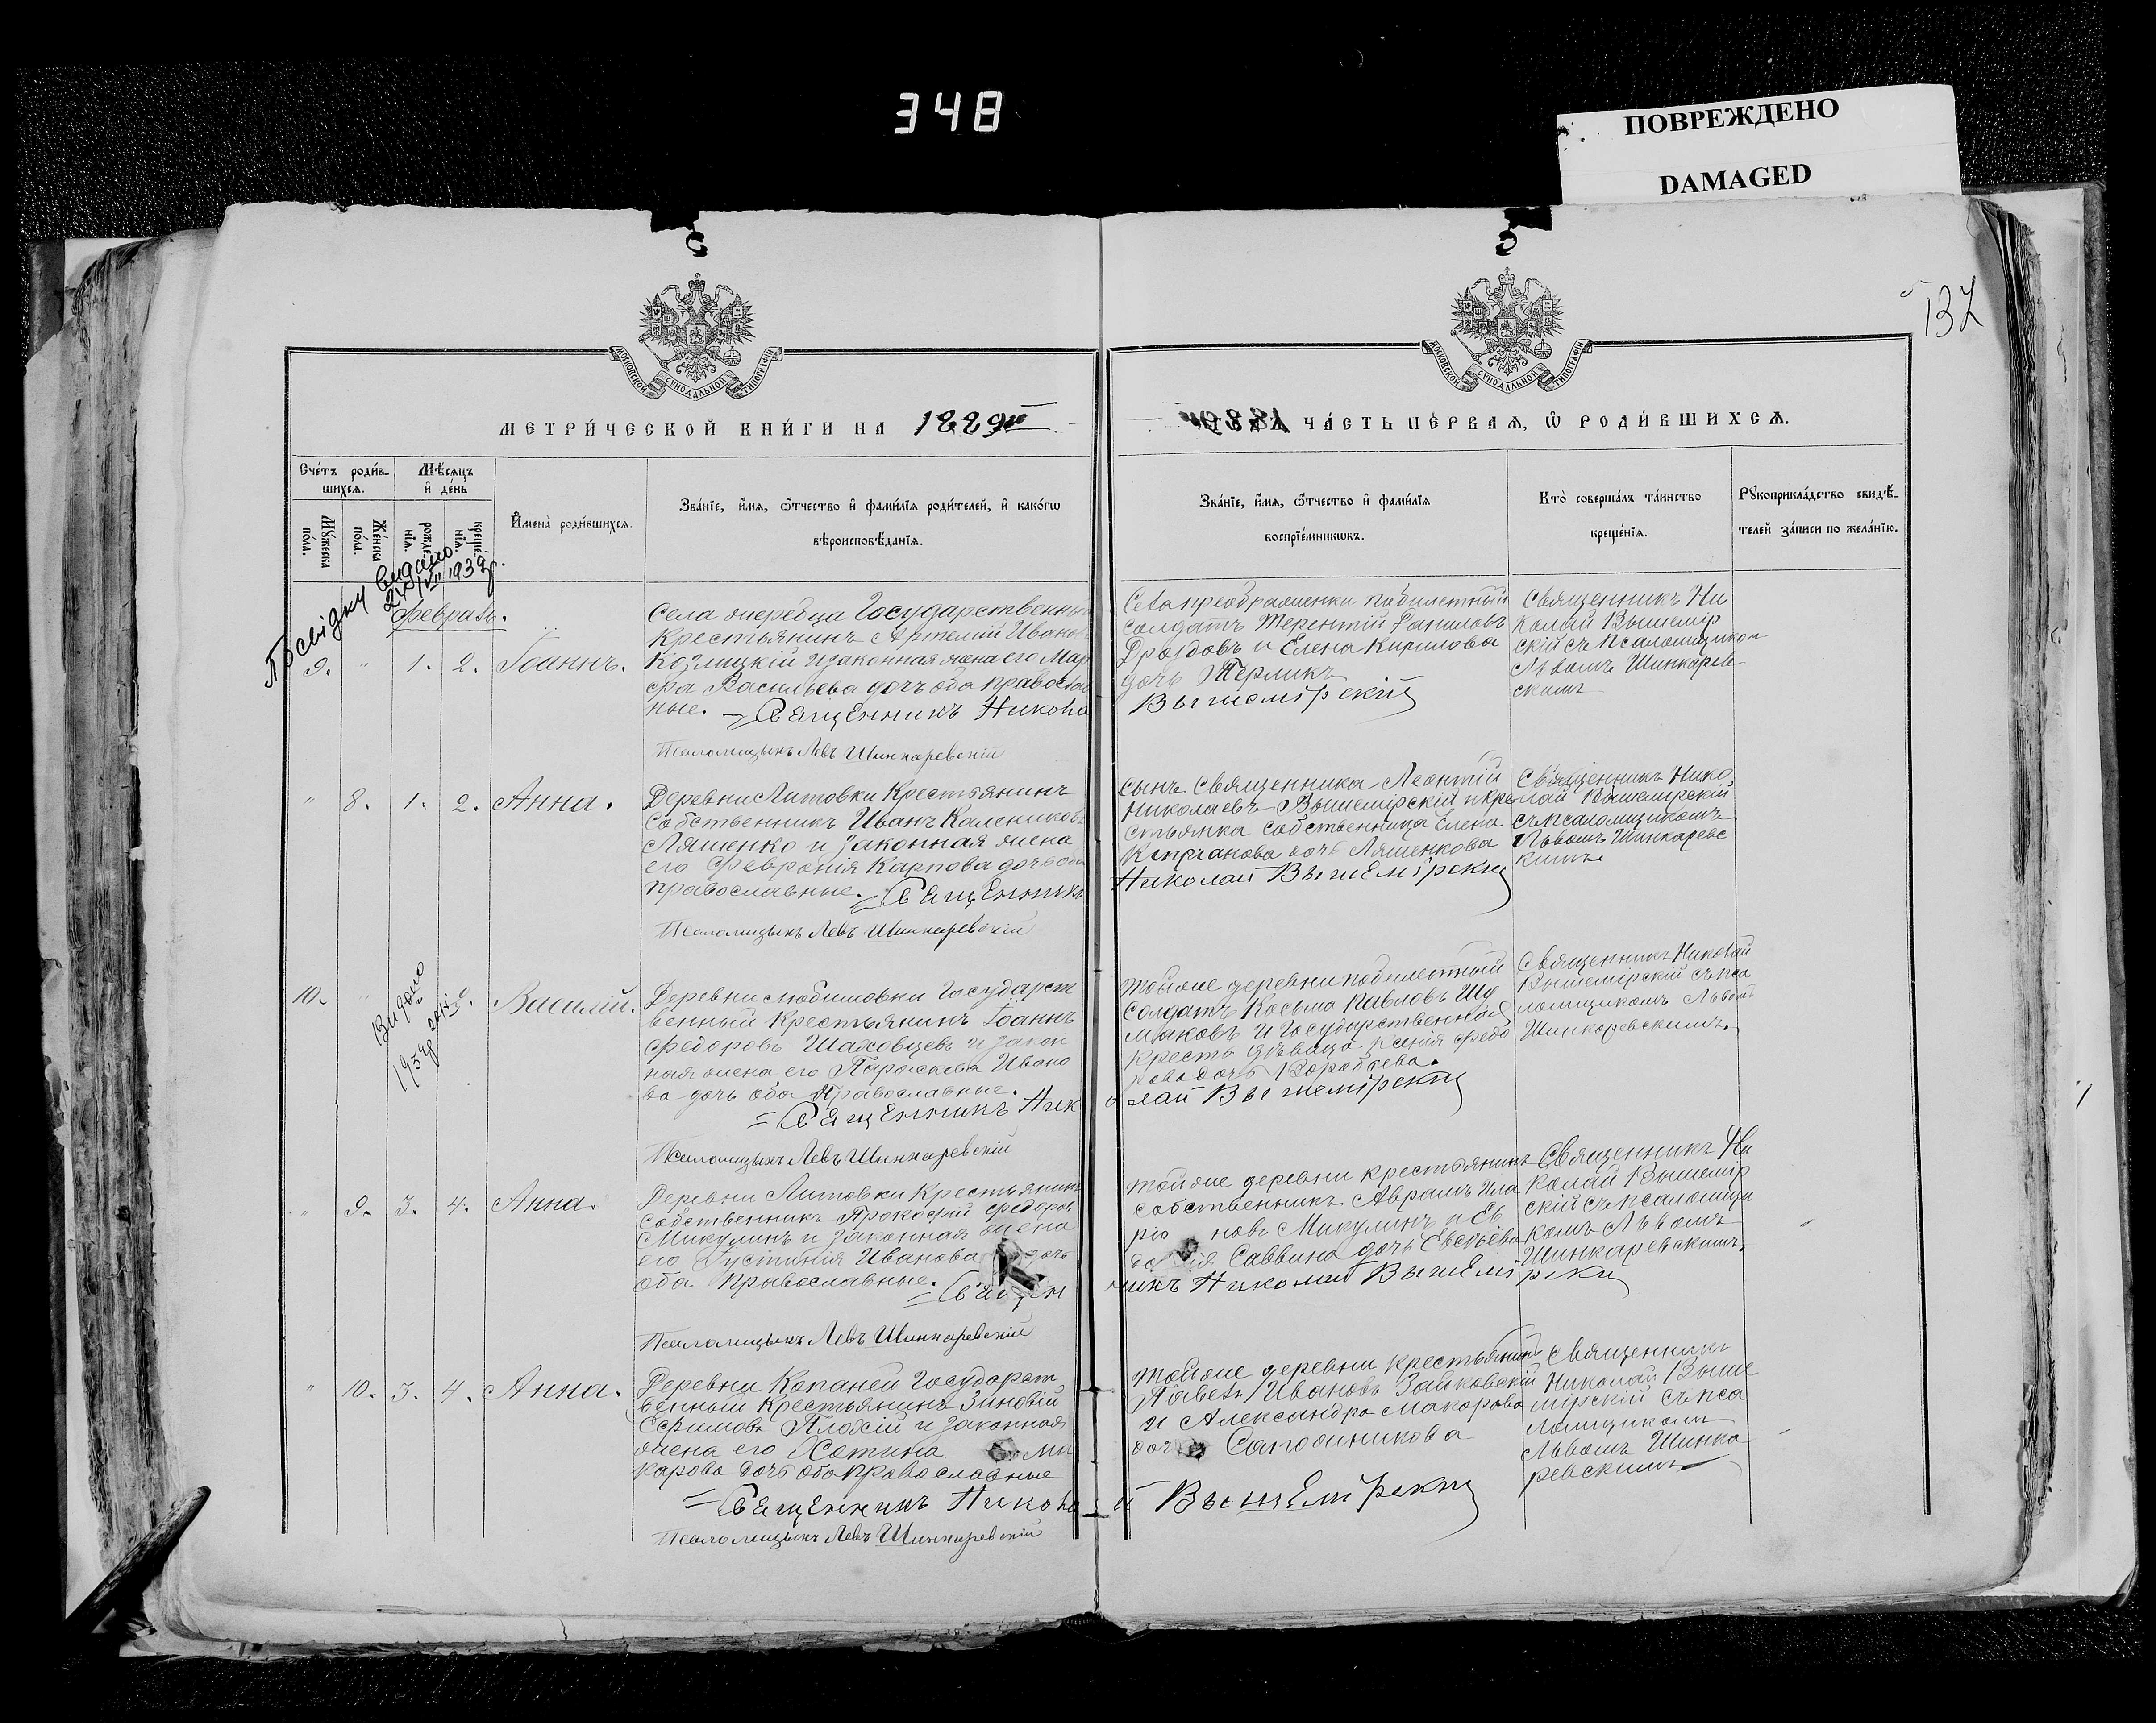 348
ПОВРЕЖДЕНО
DAMAGED
132
МОСКОВСКОЙ СѴНОДАЛЬНОЙ ТИПОГРАФІИ
МОСКОВСКОЙ СѴНОДАЛЬНОЙ ТИПОГРАФІИ
МЕТРИ́ЧЕСКОЙ КНИ́ГИ НА 1889й
ЧА́СТЬ ПЕ́РВАЯ, Ѡ РОДИ́ВШИХСЯ.
Сче́тъ роди́в-
шихся.
Мѣ́сяцъ
и҆ де́нь
Мꙋ́жеска
по́ла.
Же́нска
по́ла.
рожде-
нїя.
креще́-
нїя.
И҆мена̀ роди́вшихся.
Зва́нїе, и҆́мя, ѻ҆́тчество и҆ фами́лїя роди́телей, и҆ како́гѡ
вѣроисповѣ́данїя.
Зва́нїе, и҆́мя, ѻ҆́тчество и҆ фами́лїя
воспрїе́мникѡвъ.
Кто̀ соверша́лъ та́инство
креще́нїя.
Рꙋкоприкла́дство свидѣ́-
телей за́писи по жела́нїю.
Посвідку видано
1939р.
Февраль.
9. " 1. 2. Іоаннъ.
Села Жеребца Государственный
Крестьянинъ Артемий Ивановъ
Козлицкій и законная жена его Мар
фа Васильева дочь оба православ
ные. = Священникъ Никола
Псаломщикъ Левъ Шинкаревскій
Села преображенки побилетный
солдатъ Терентій Даниловъ
Дроздовъ и Елена Кирилова
дочь Терликъ
Вышемірскій
Священникъ Ни
колай Вышемір
скій съ псаломщикомъ
Львомъ Шинкарев-
скимъ
" 8. 1. 2. Анна.
Деревни Литовки Крестьянинъ
Собственникъ Иванъ Калениковъ
Ляшенко и законная жена
его Февронія Карпова дочь оба
православные. = Священникъ
Псаломщикъ Левъ Шинкаревскій
сынъ Священника Леонтій
Николаевъ Вышемірскій и кре
стьянка собственница Елена
Кипріанова дочь Ляшенкова
Николай Вышемірскій
Священникъ Нико
лай Вышемірскій
съ псаломщикомъ
Львомъ Шинкаревс
кимъ.
10. "
Видано
Василій.
Деревни любимовки Государст
венный Крестьянинъ Іоаннъ
Федоровъ Шаховцевъ и закон
ная жена его Параскева Ивано
ва дочь оба Православные.
= Священникъ Ник
Псаломщикъ Левъ Шинкаревскій
тойже деревни побилетный
Солдатъ Косьма Павловъ Шу
маковъ и Государственная
кресть дѣвица Ксенія Федо
рова дочь Воробьева.
олай Вышемірскій
Священникъ Николай
Вышемірскій съ пса
ломщикомъ Львомъ
Шинкаревскимъ.
" 9. 3. 4. Анна.
Деревни Литовки Крестьянинъ
Собственникъ Прокофій Федоровъ
Микулинъ и законная жена
его Іустинія Иванова дочь
оба Православные.
= Священ
Псаломщикъ Левъ Шинкаревскій
тойже деревни крестьянинъ
собственникъ Аврамъ Ила
ріоновъ Микулинъ и Ев
до ія Саввина дочь
никъ Николай Вышемірскій
Священникъ Ни
колай Вышемір
скій съ псаломщи
комъ Львомъ
Шинкаревскимъ.
" 10. 3. 4. Анна.
Деревни Копаней Государст
венный Крестьянинъ Зиновій
Ефимовъ Плохій и законная
жена его Хотина Ма
карова дочь оба православные
= Священникъ Никола
Псаломщикъ Левъ Шинкаревскій
тойже деревни крестьянинъ
Павелъ Ивановъ Зайковскій
и Александра Макарова
дочь Сапожникова
й Вышемірскій
Священникъ
Николай Выше
мірскій съ пса
ломщикомъ
Львомъ Шинка
ревскимъ